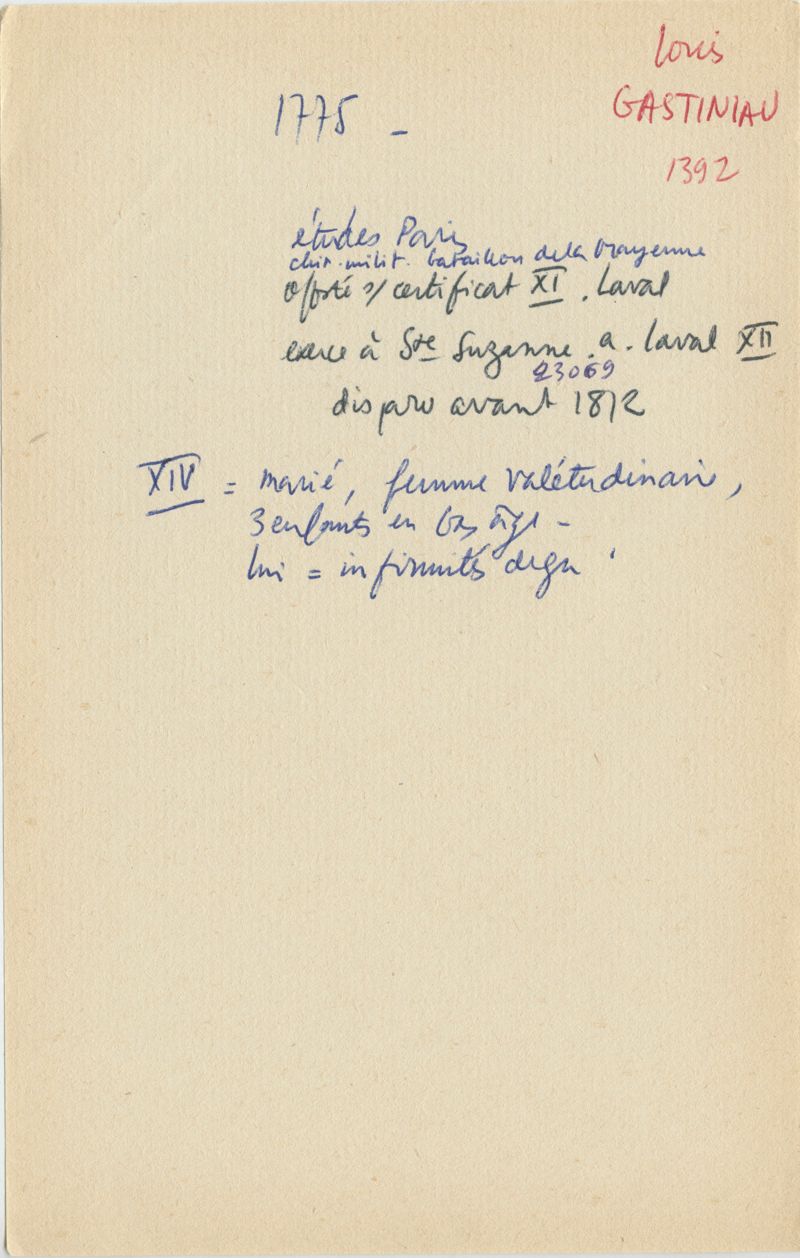 Louis
GASTINIAU
1392
1775 -
études Paris
chir. milit. bataillon de la Mayenne
s/ certificat XI. Laval
exerce à Ste Suzanne. a. Laval XII
23069
disparu avant 1812
XIV = marié, femme valétudinaire,
3 enfants en bas âge -
lui = infirmités